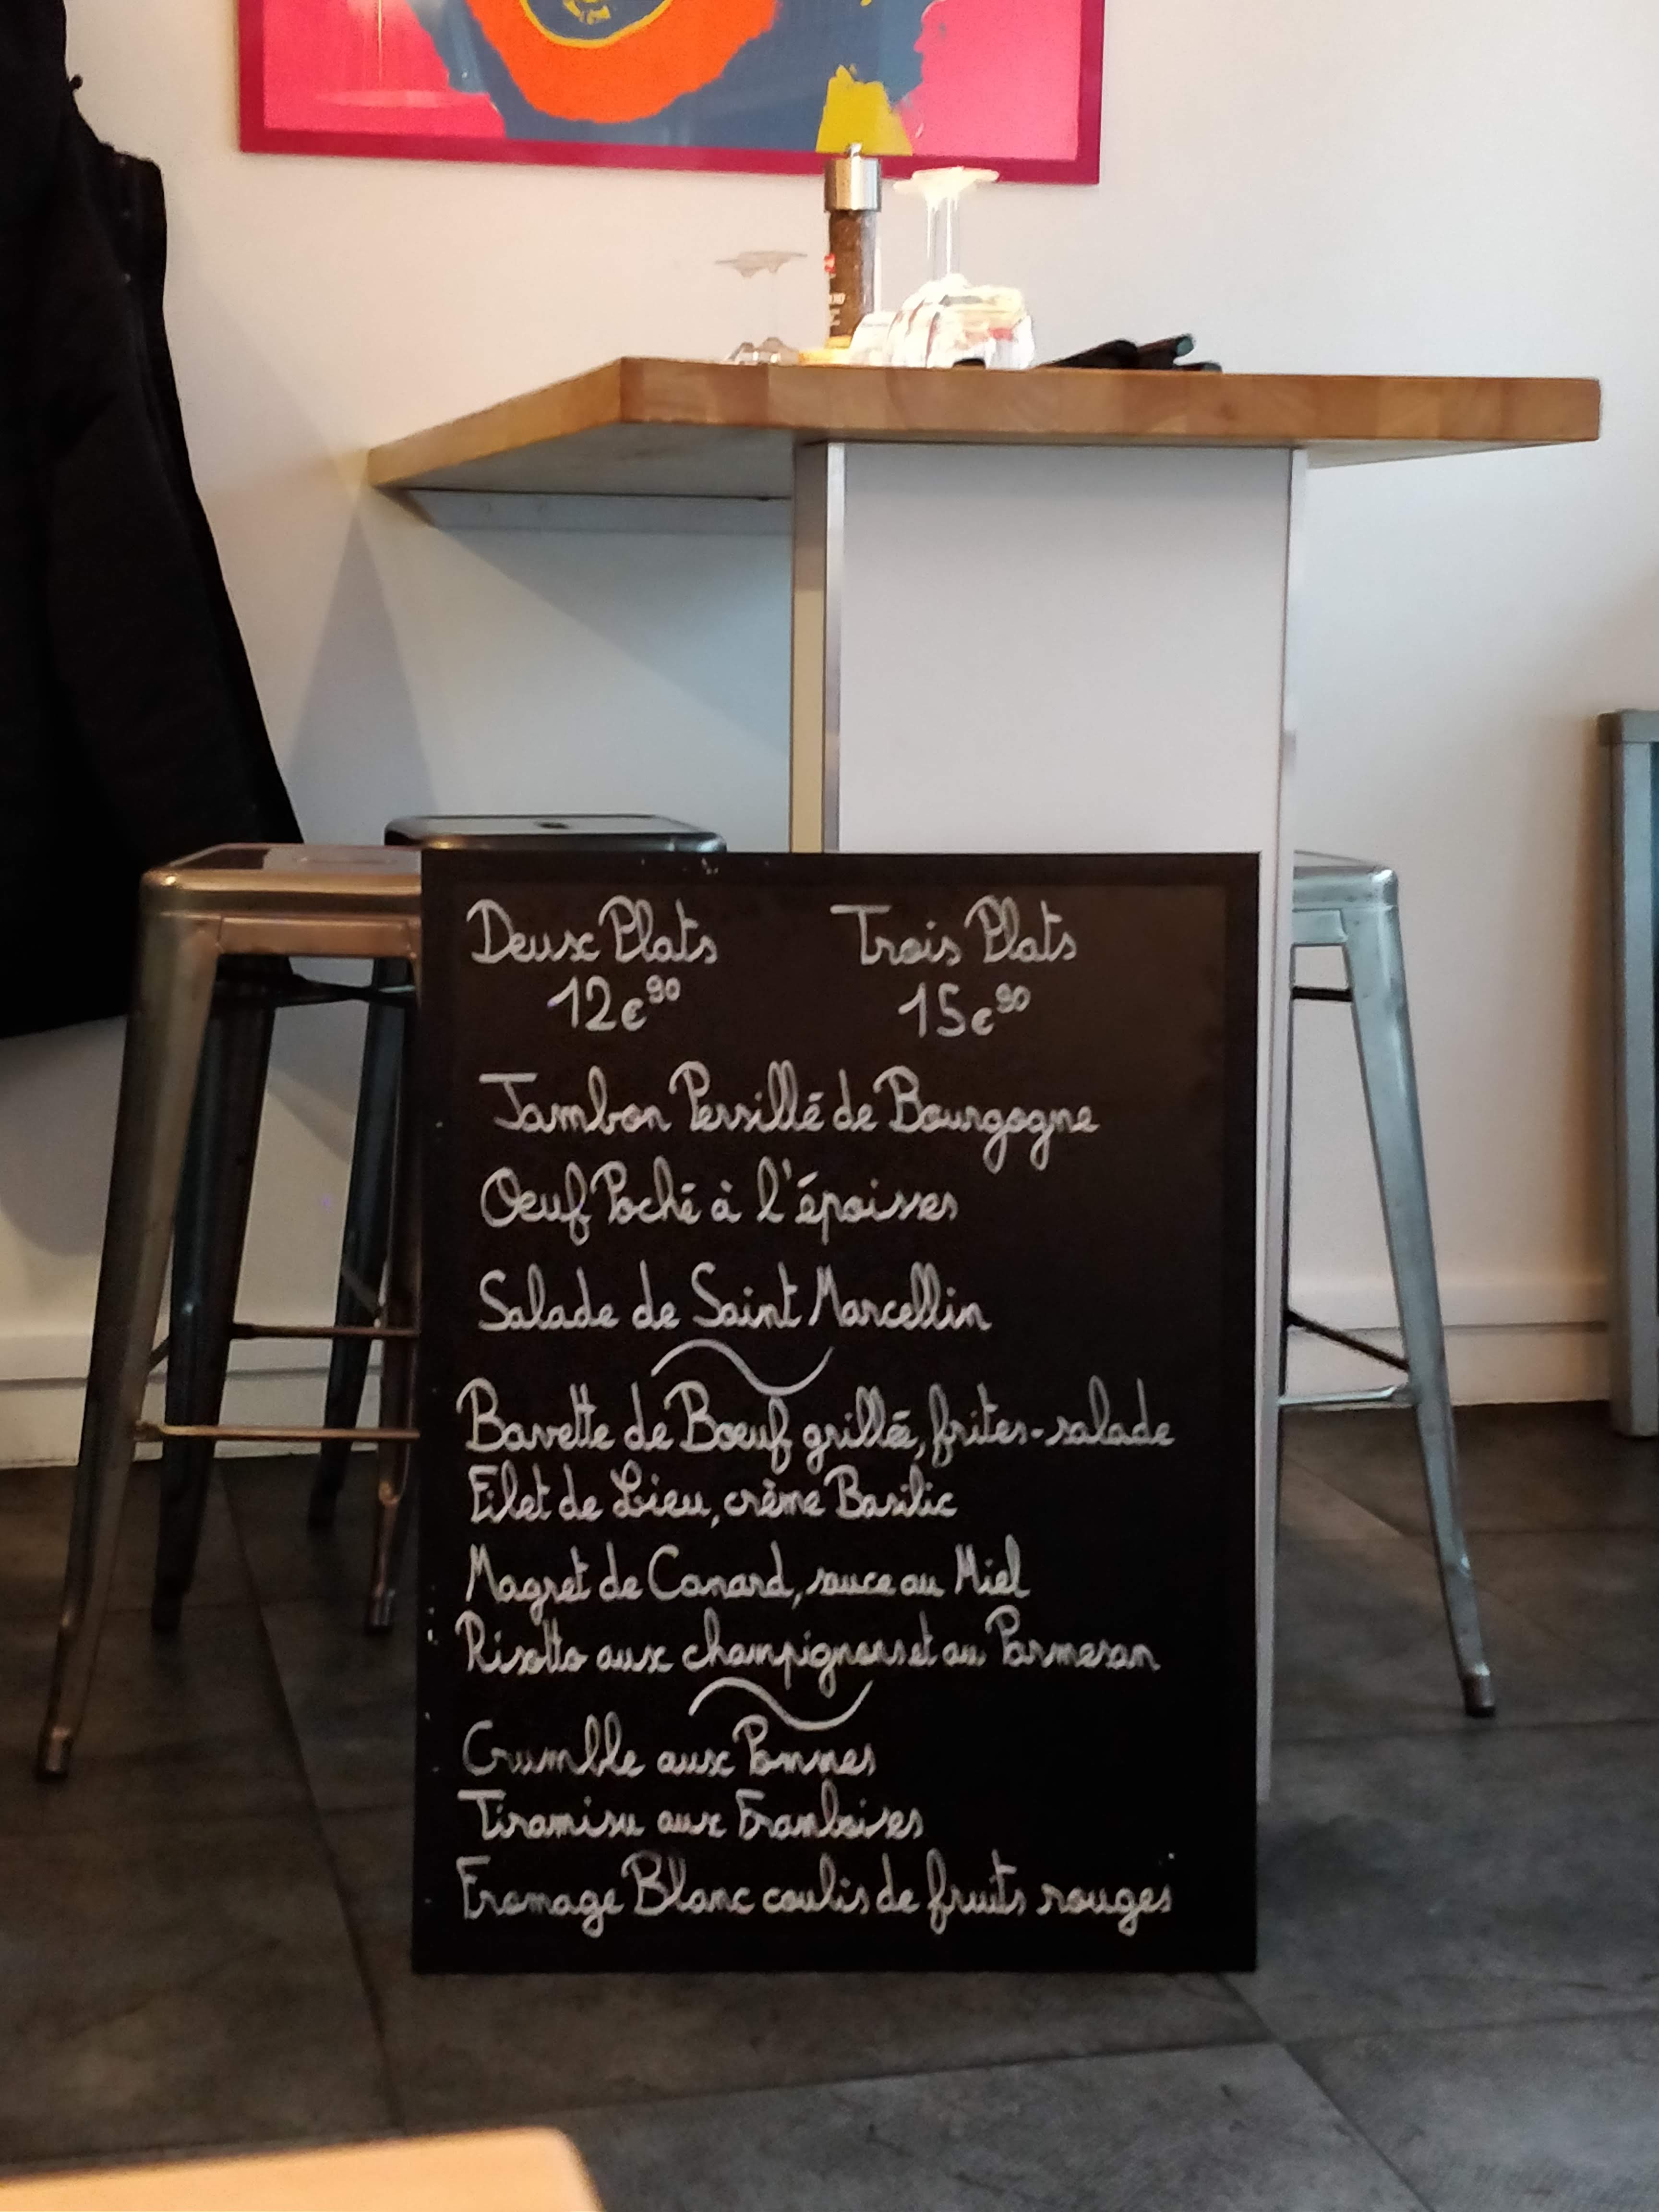 Deux Plats Trois Plats
12€90 15€90
Jambon Persillé de Bourgogne
Oeuf Poché à l'époisses
Salade de Saint Marcellin
Bavette de Boeuf grillée, frites-salade
Filet de Lieu, crème Basilic
Magret de Canard, sauce au Miel
Risotto aux champignons et au Parmesan
Crumble aux Pommes
Tiramisu aux Framboises
Fromage Blanc coulis de fruits rouges